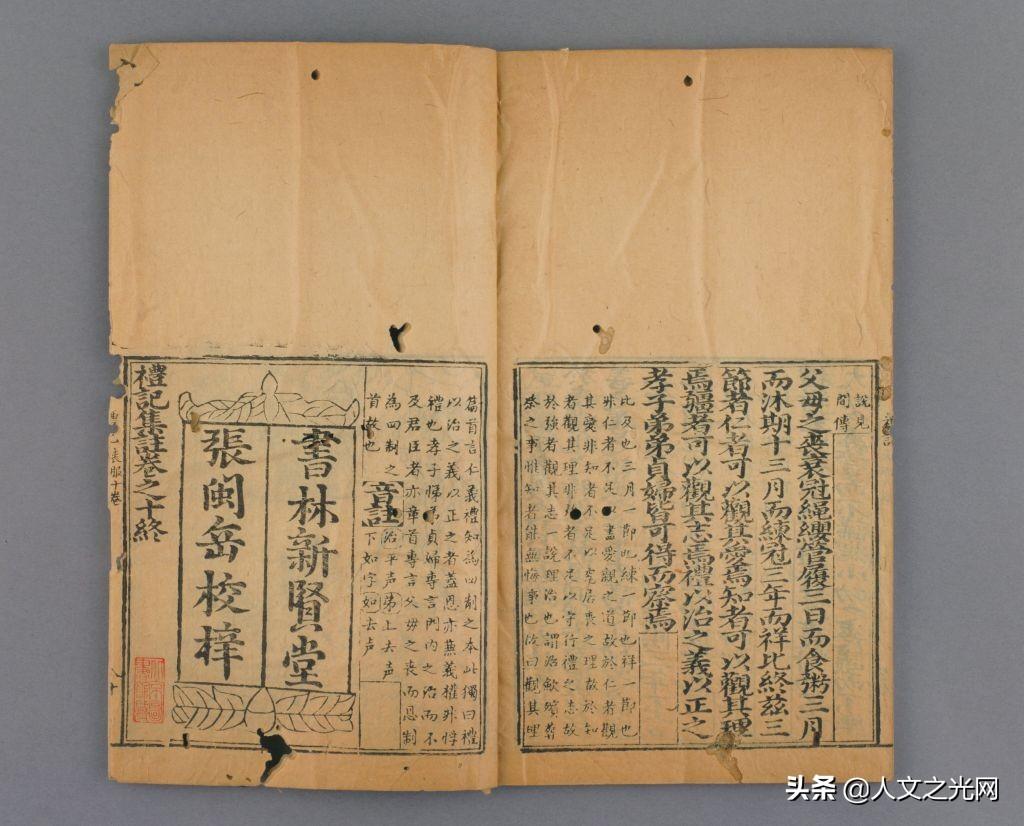 說見
間傳
父母之喪衰冠繩纓菅屨三日而食粥三月
而沐期十三月而練冠三年而祥比終茲三
節者仁者可以觀其愛焉知者可以觀其理
焉彊者可以觀其志焉禮以治之義以正之
孝子弟弟貞婦皆可得而察焉
比及也三月一節也練一節也祥一節也
非仁者不足以盡愛觀之道故於仁者觀
其愛非知者不足以究居喪之理故於知
者觀其理非強者不足以守行禮之志故
於強者觀其志一說理治也謂治斂殯葬
祭之事惟知者能無悔事也故曰觀其理
篇首言仁義禮知為四制之本此獨曰禮
以治之義以正之者蓋恩亦兼義權非悖
禮也孝子悌弟貞婦專言門內之治而不
及君臣者亦章首專言父母之喪而恩制
為四制之
首故也
音註
治平声弟上去声
下如字如去声
書林新賢堂
張閩岳校梓
禮記集註卷之十終
头条 @人文之光网